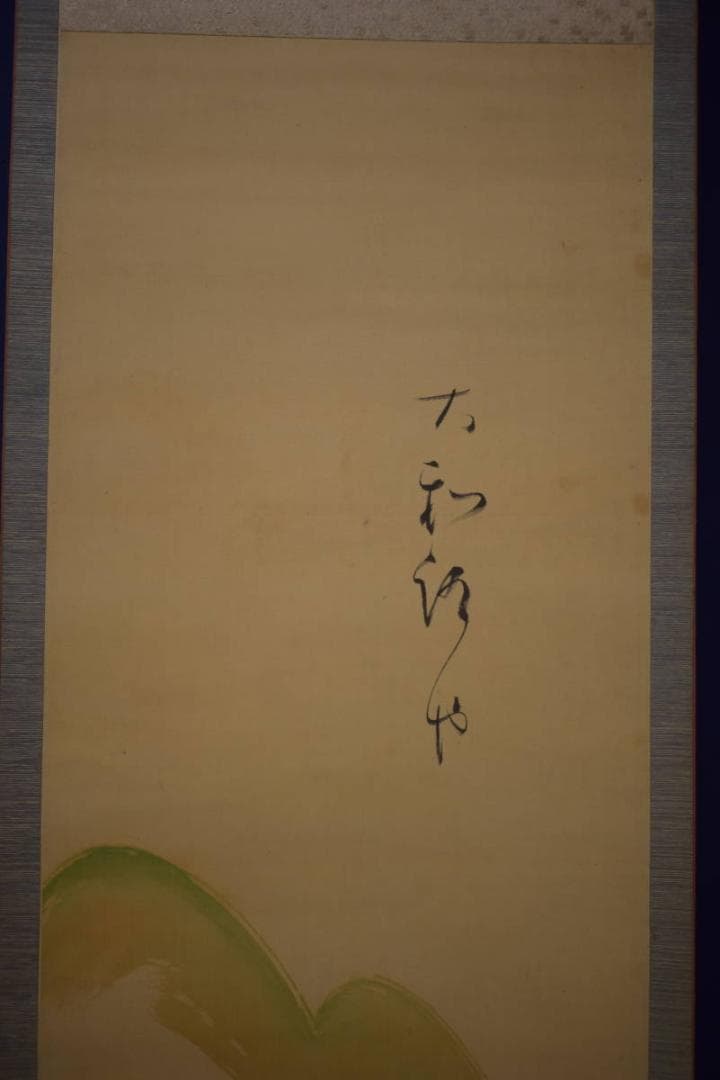 大和路や